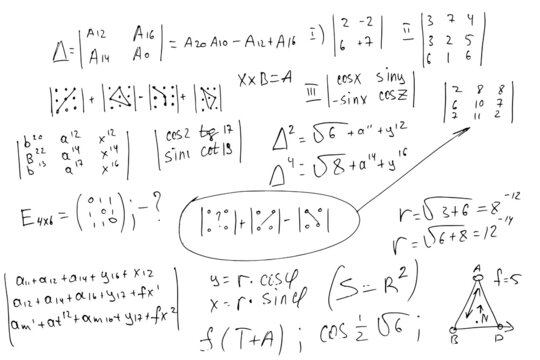 Δ = | A12 A16 | = A20 A10 – A12 + A16
| A14 A0 |
I) | 2 -2 |
| 6 +7 |
II | 3 7 4 |
| 3 2 5 |
| 6 1 6 |
+ – +
X x B = A
III | cosx siny |
| -sinx cosz |
| 2 8 8 |
| 6 10 7 |
| 7 11 2 |
| b²⁰ a¹² x¹² |
| B²² a¹⁴ x¹⁴ |
| b¹³ a¹⁷ x¹⁶ |
| cos2 tg 17 |
| sin1 cot 19 |
Δ² = √6 + a¹¹ + y¹²
Δ⁴ = √8 + a¹⁴ + y¹⁶
E4x6 = ( 0 1 1 ) ; – ?
( 1 1 0 )
? + –
r = √3+6 = 8⁻¹²
r = √6+8 = 12⁻¹⁴
| a11 + a12 + a14 + y16 + x12 |
| a12 + a14 + a16 + y17 + fx¹ |
| am¹ + at¹² + am10 + y17 + fx² |
y = r · cosφ
x = r · sinφ
(S = R²)
f (T+A) ; cos ½ √6 ;
A
f=5
N
B D